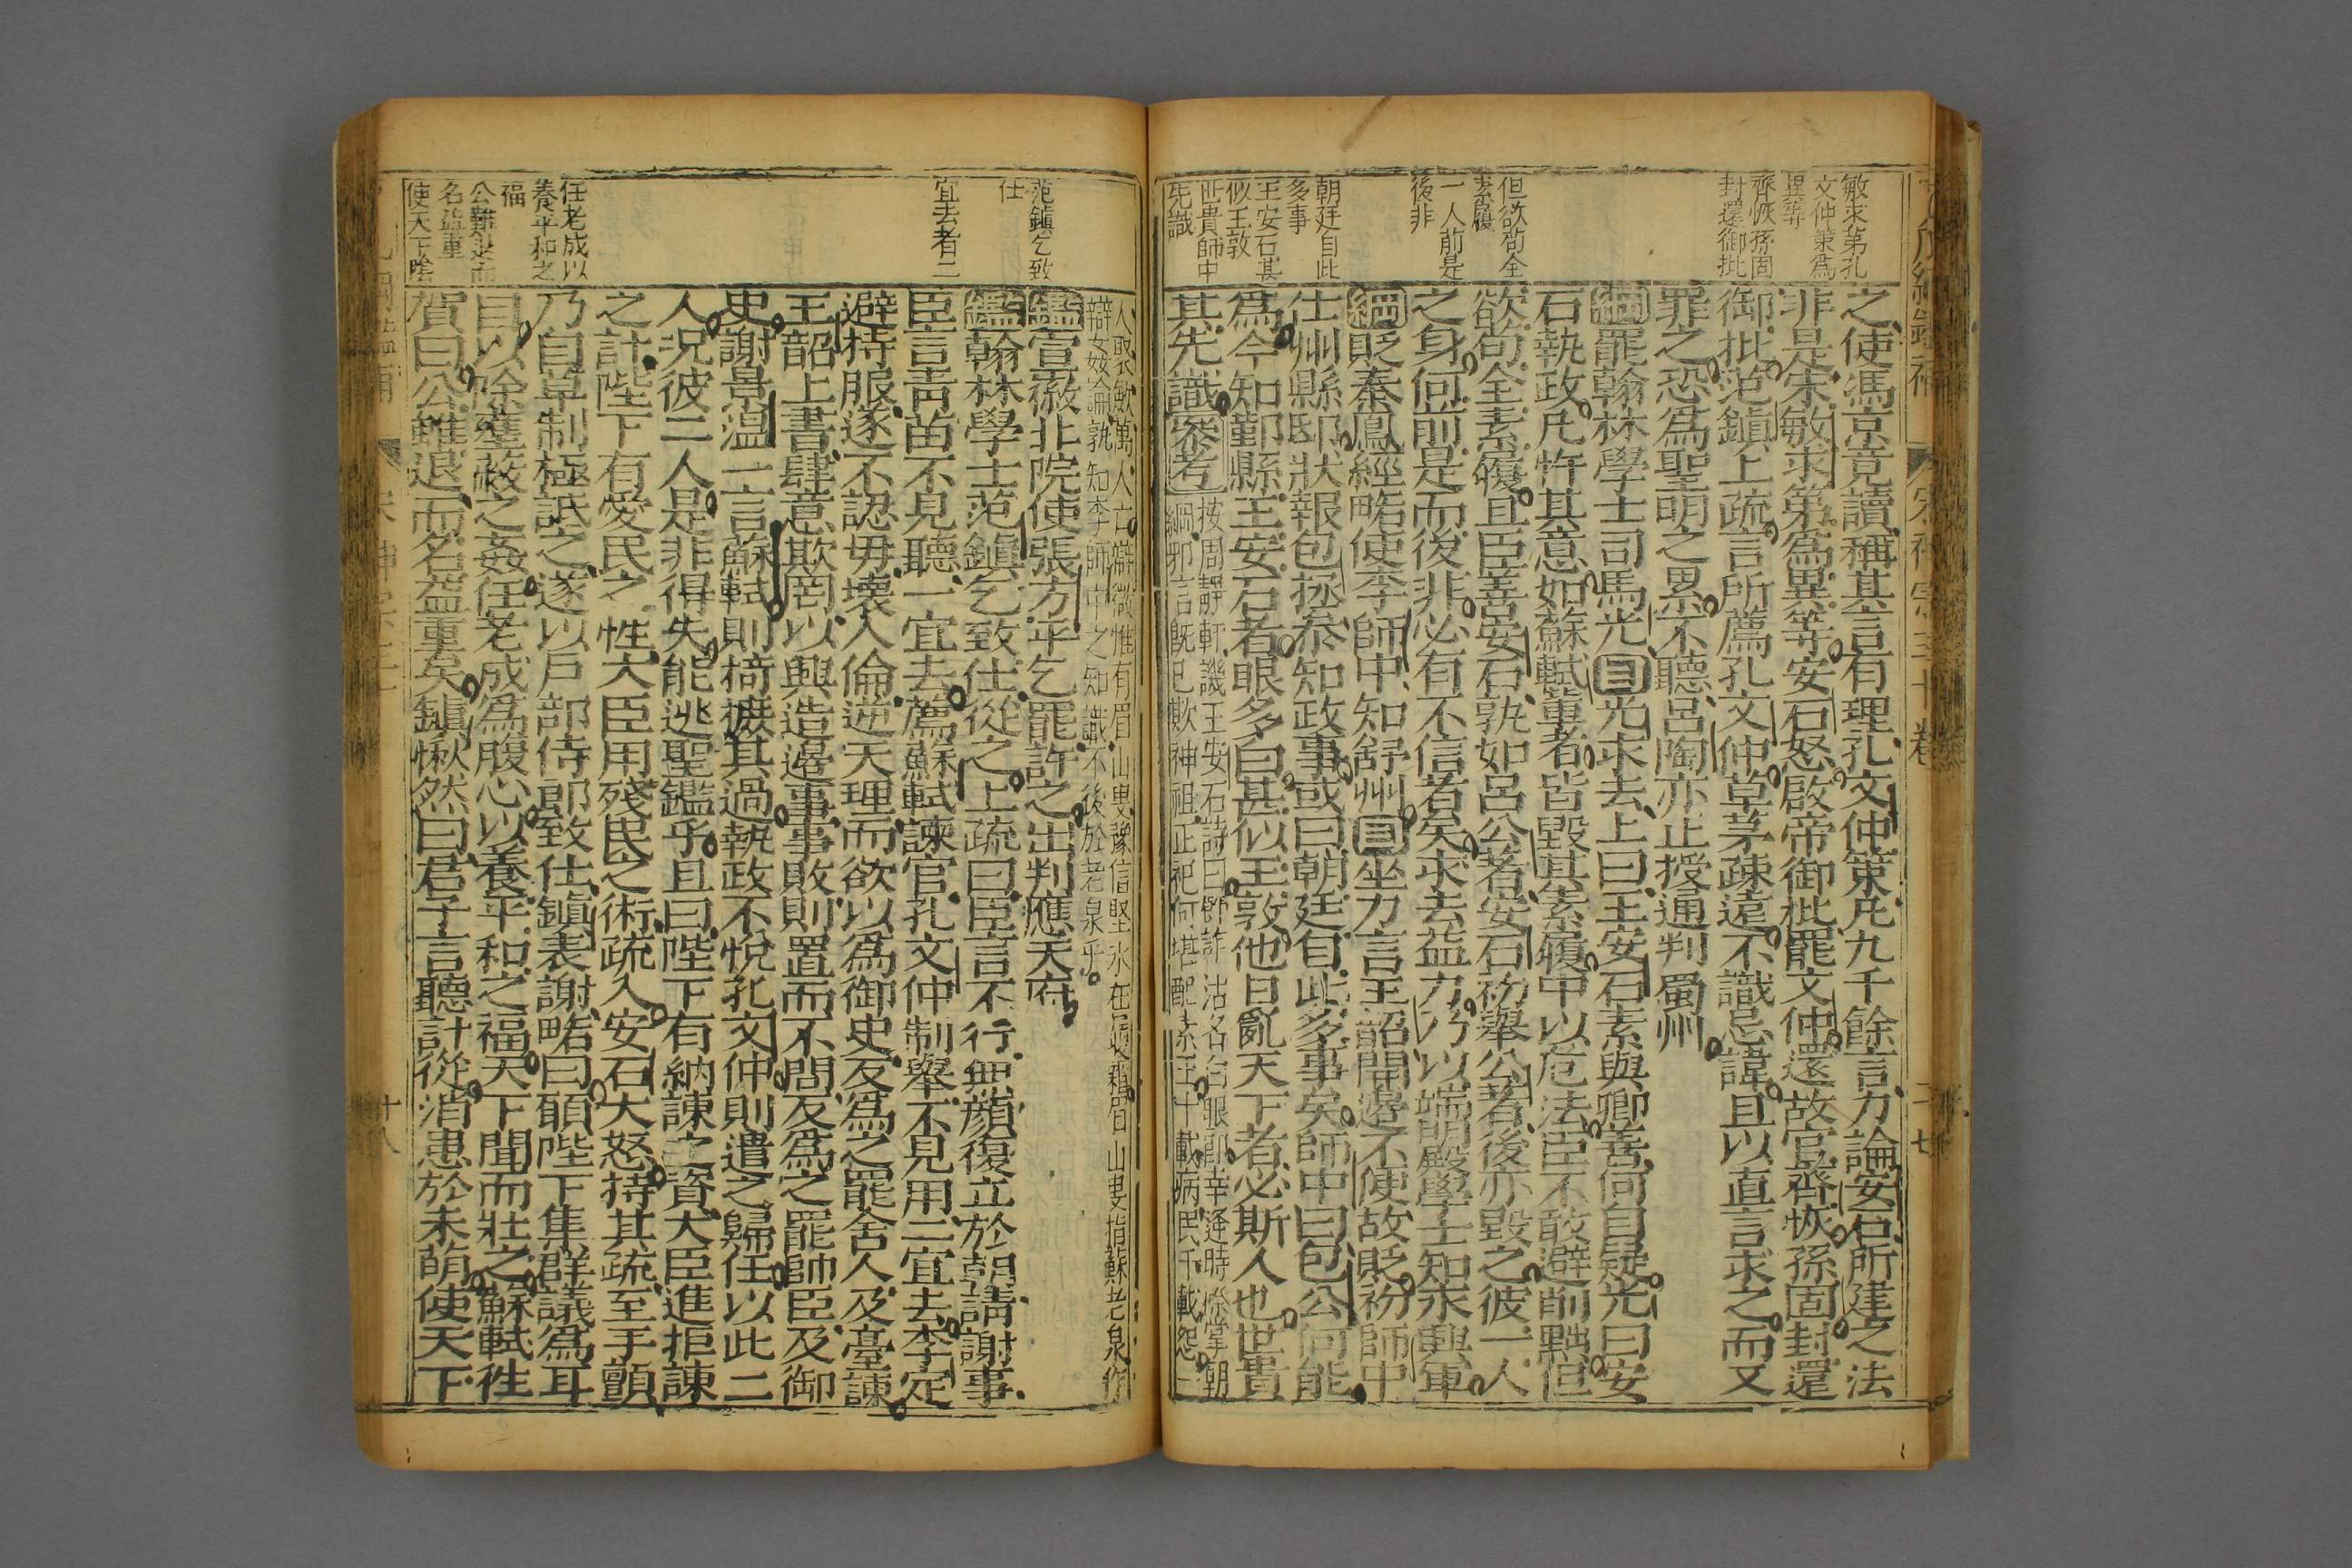 敏求第孔
文仲策爲
異等
齊恢孫固
封還御批
但欲苟全
素履
一人前是
後非
朝廷自此
多事
王安石甚
似王敦
世貴師中
先識
之使馮京竟讀稱其言有理孔文仲策凡九千餘言力論安石所建之法
非是宋敏求第爲異等安石怒啟帝御批罷文仲還故官齊恢孫固封還
御批范鎮上疏言所薦孔文仲草茅疎遠不識忌諱且以直言求之而又
罪之恐爲聖明之累不聽呂陶亦止授通判蜀州
綱罷翰林學士司馬光目光求去上曰王安石素與卿善何自疑光曰安
石執政凡忤其意如蘇軾輩者皆毀其素履中以危法臣不敢避削黜但
欲苟全素履且臣善安石孰如呂公著安石初舉公著後亦毀之彼一人
之身何前是而後非必有不信者矣求去益力乃以端明殿學士知永興軍
綱貶秦鳳經略使李師中知舒州目坐力言王韶開邊不便故貶初師中
仕州縣邸狀報包拯叅知政事或曰朝廷自此多事矣師中曰包公何能
爲今知鄞縣王安石者眼多白甚似王敦他日亂天下者必斯人也世貴
其先識叅考按周靜軒譏王安石詩曰矯詐沽名白眼郎幸逢時際掌朝
綱邪言旣已欺神祖正祀何堪配素王十載病民千載怨一
范鎮乞致
仕
宜去者二
任老成以
養平和之
福
公雖退而
名益重
使天下陰
人裂敏萬人古辯微惟有眉山叟豫信堅氷在履霜眉山叟指蘇老泉作
辯姦論孰知李師中之知識不後於老泉乎
鑑宣徽北院使張方平乞罷許之出判應天府
鑑翰林學士范鎮乞致仕從之上疏曰臣言不行無顏復立於朝請謝事
臣言靑苗不見聽一宜去薦蘇軾諫官孔文仲制舉不見用二宜去李定
避持服遂不認毋壞人倫逆天理而欲以爲御史反爲之罷舍人及臺諫
王韶上書肆意欺罔以興造邊事事敗則置而不問反爲之罷帥臣及御
史謝景溫一言蘇軾則掎摭其過執政不悅孔文仲則遣之歸任以此二
人况彼二人是非得失能逃聖鑑乎且曰陛下有納諫之資大臣進拒諫
之計陛下有愛民之性大臣用殘民之術疏入安石大怒持其疏至手顫
乃自草制極詆之遂以戶部侍郎致仕鎮表謝略曰願陛下集群議爲耳
目以除壅蔽之姦任老成爲腹心以養平和之福天下聞而壯之蘇軾徃
賀曰公雖退而名益重矣鎮愀然曰君子言聽計從消患於未萌使天下
十八